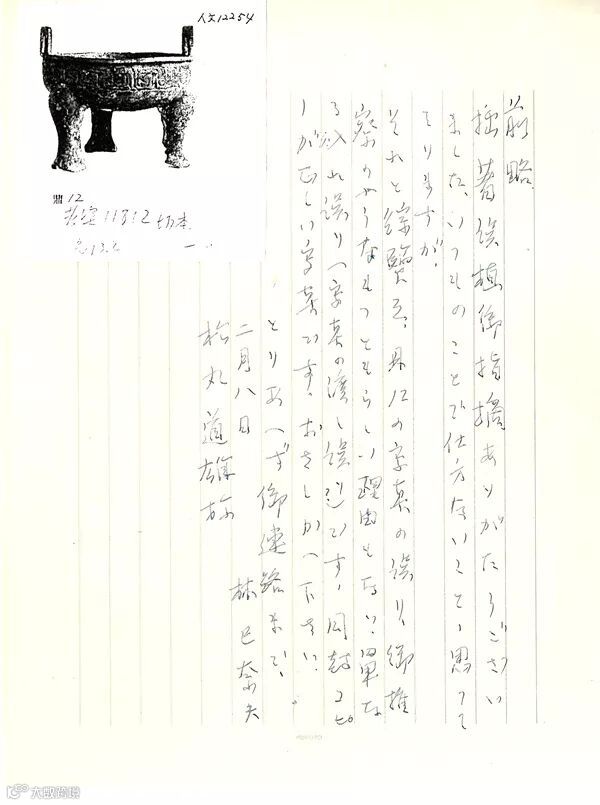 人文12254
鼎12
11812切本
前略
拙著誤植御指摘ありがたうござい
ました。いつものことで仕方ないこと、思つて
をりますが。
それと綜覽三、鼎12の字墓の誤り、御推
察のやうなもつともらしい理由もない、單な
る入れ誤り(字墓の渡し誤り)です。同封コピ
ーが正しい字墓です。おさしかへ下さい。
とりあへず御連絡まで。
二月八日
林巳奈夫
松丸道雄様
大